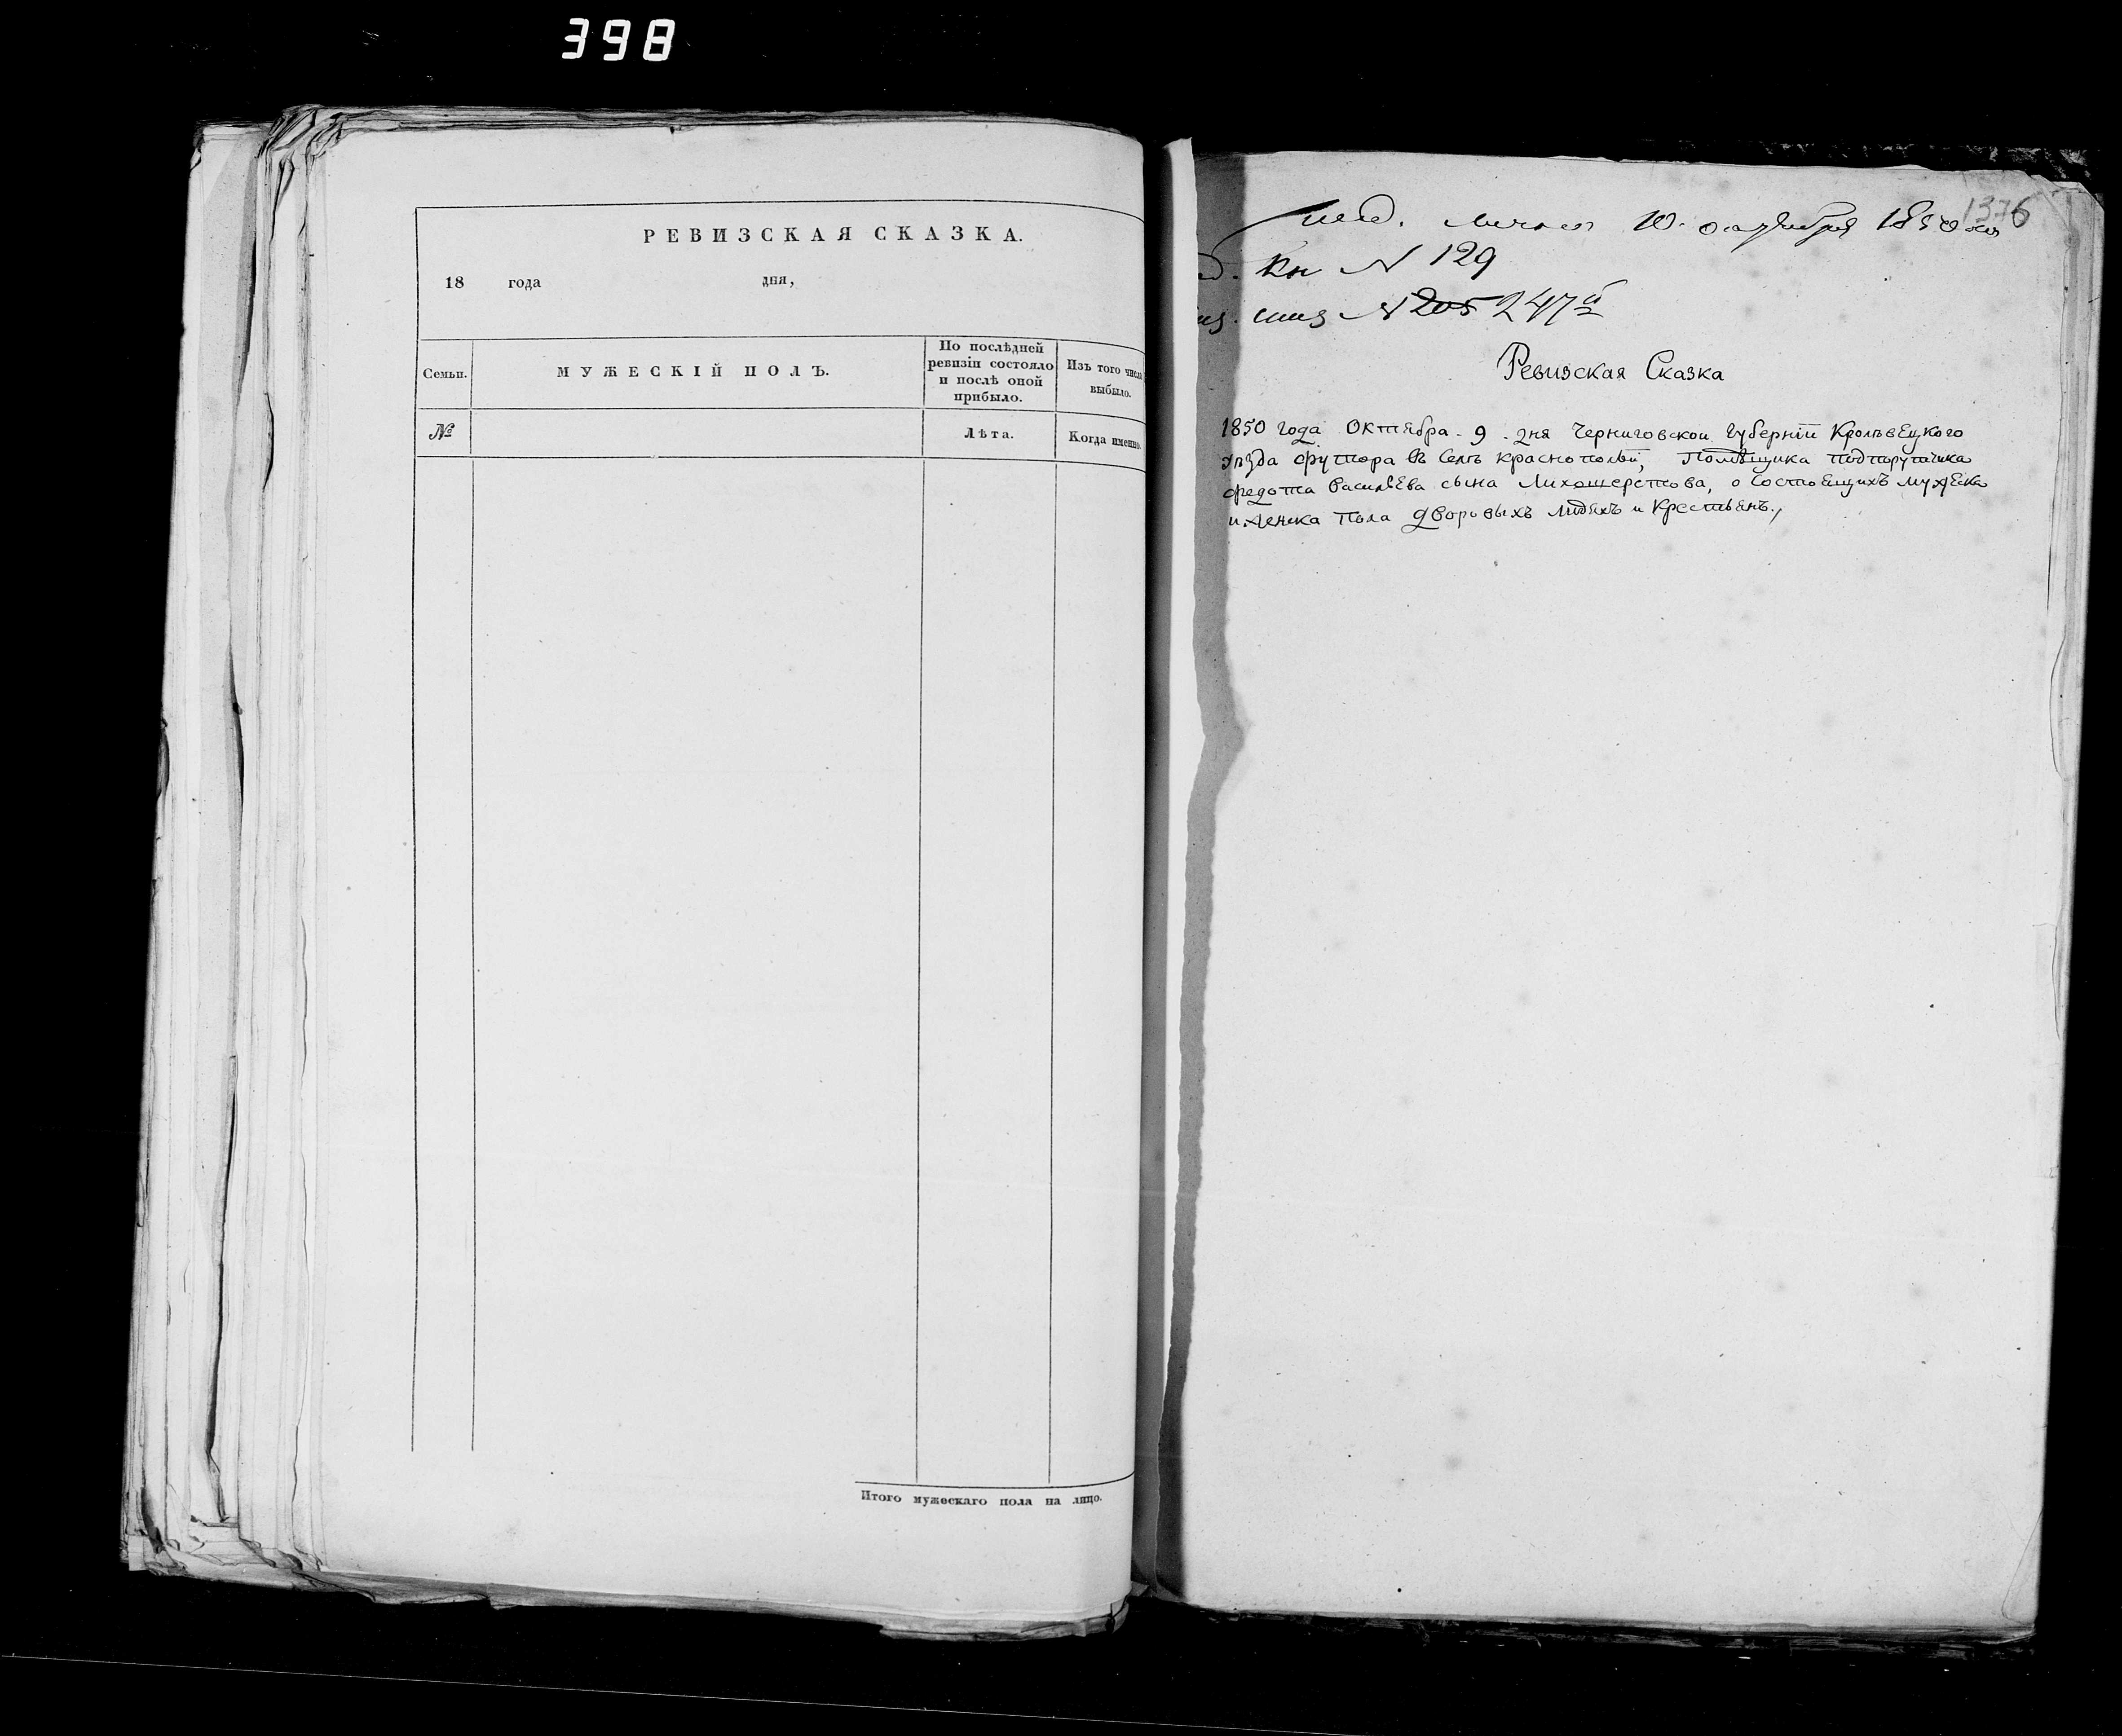 398
РЕВИЗСКАЯ СКАЗКА.
18 года дня,
Семьи.
МУЖЕСКІЙ ПОЛЪ.
По послѣдней
ревизіи состояло
и послѣ оной
прибыло.
Изъ того числа
выбыло.
№
Лѣта.
Когда именно.
Итого мужескаго пола на лицо.
1376
лично 10 октября 1850
Кн N 129
N 205 247
Ревизская Сказка
1850 года Октября 9 дня Черниговской Губерніи Кролѣвецкого
уѣзда футора въ Селѣ Краснопольи, Помѣщика Подпоручика
Федота Васильева сына Лихошерстова, о Состоещихъ мужеска
и женска Пола Дворовыхъ людяхъ и Крестьянъ.